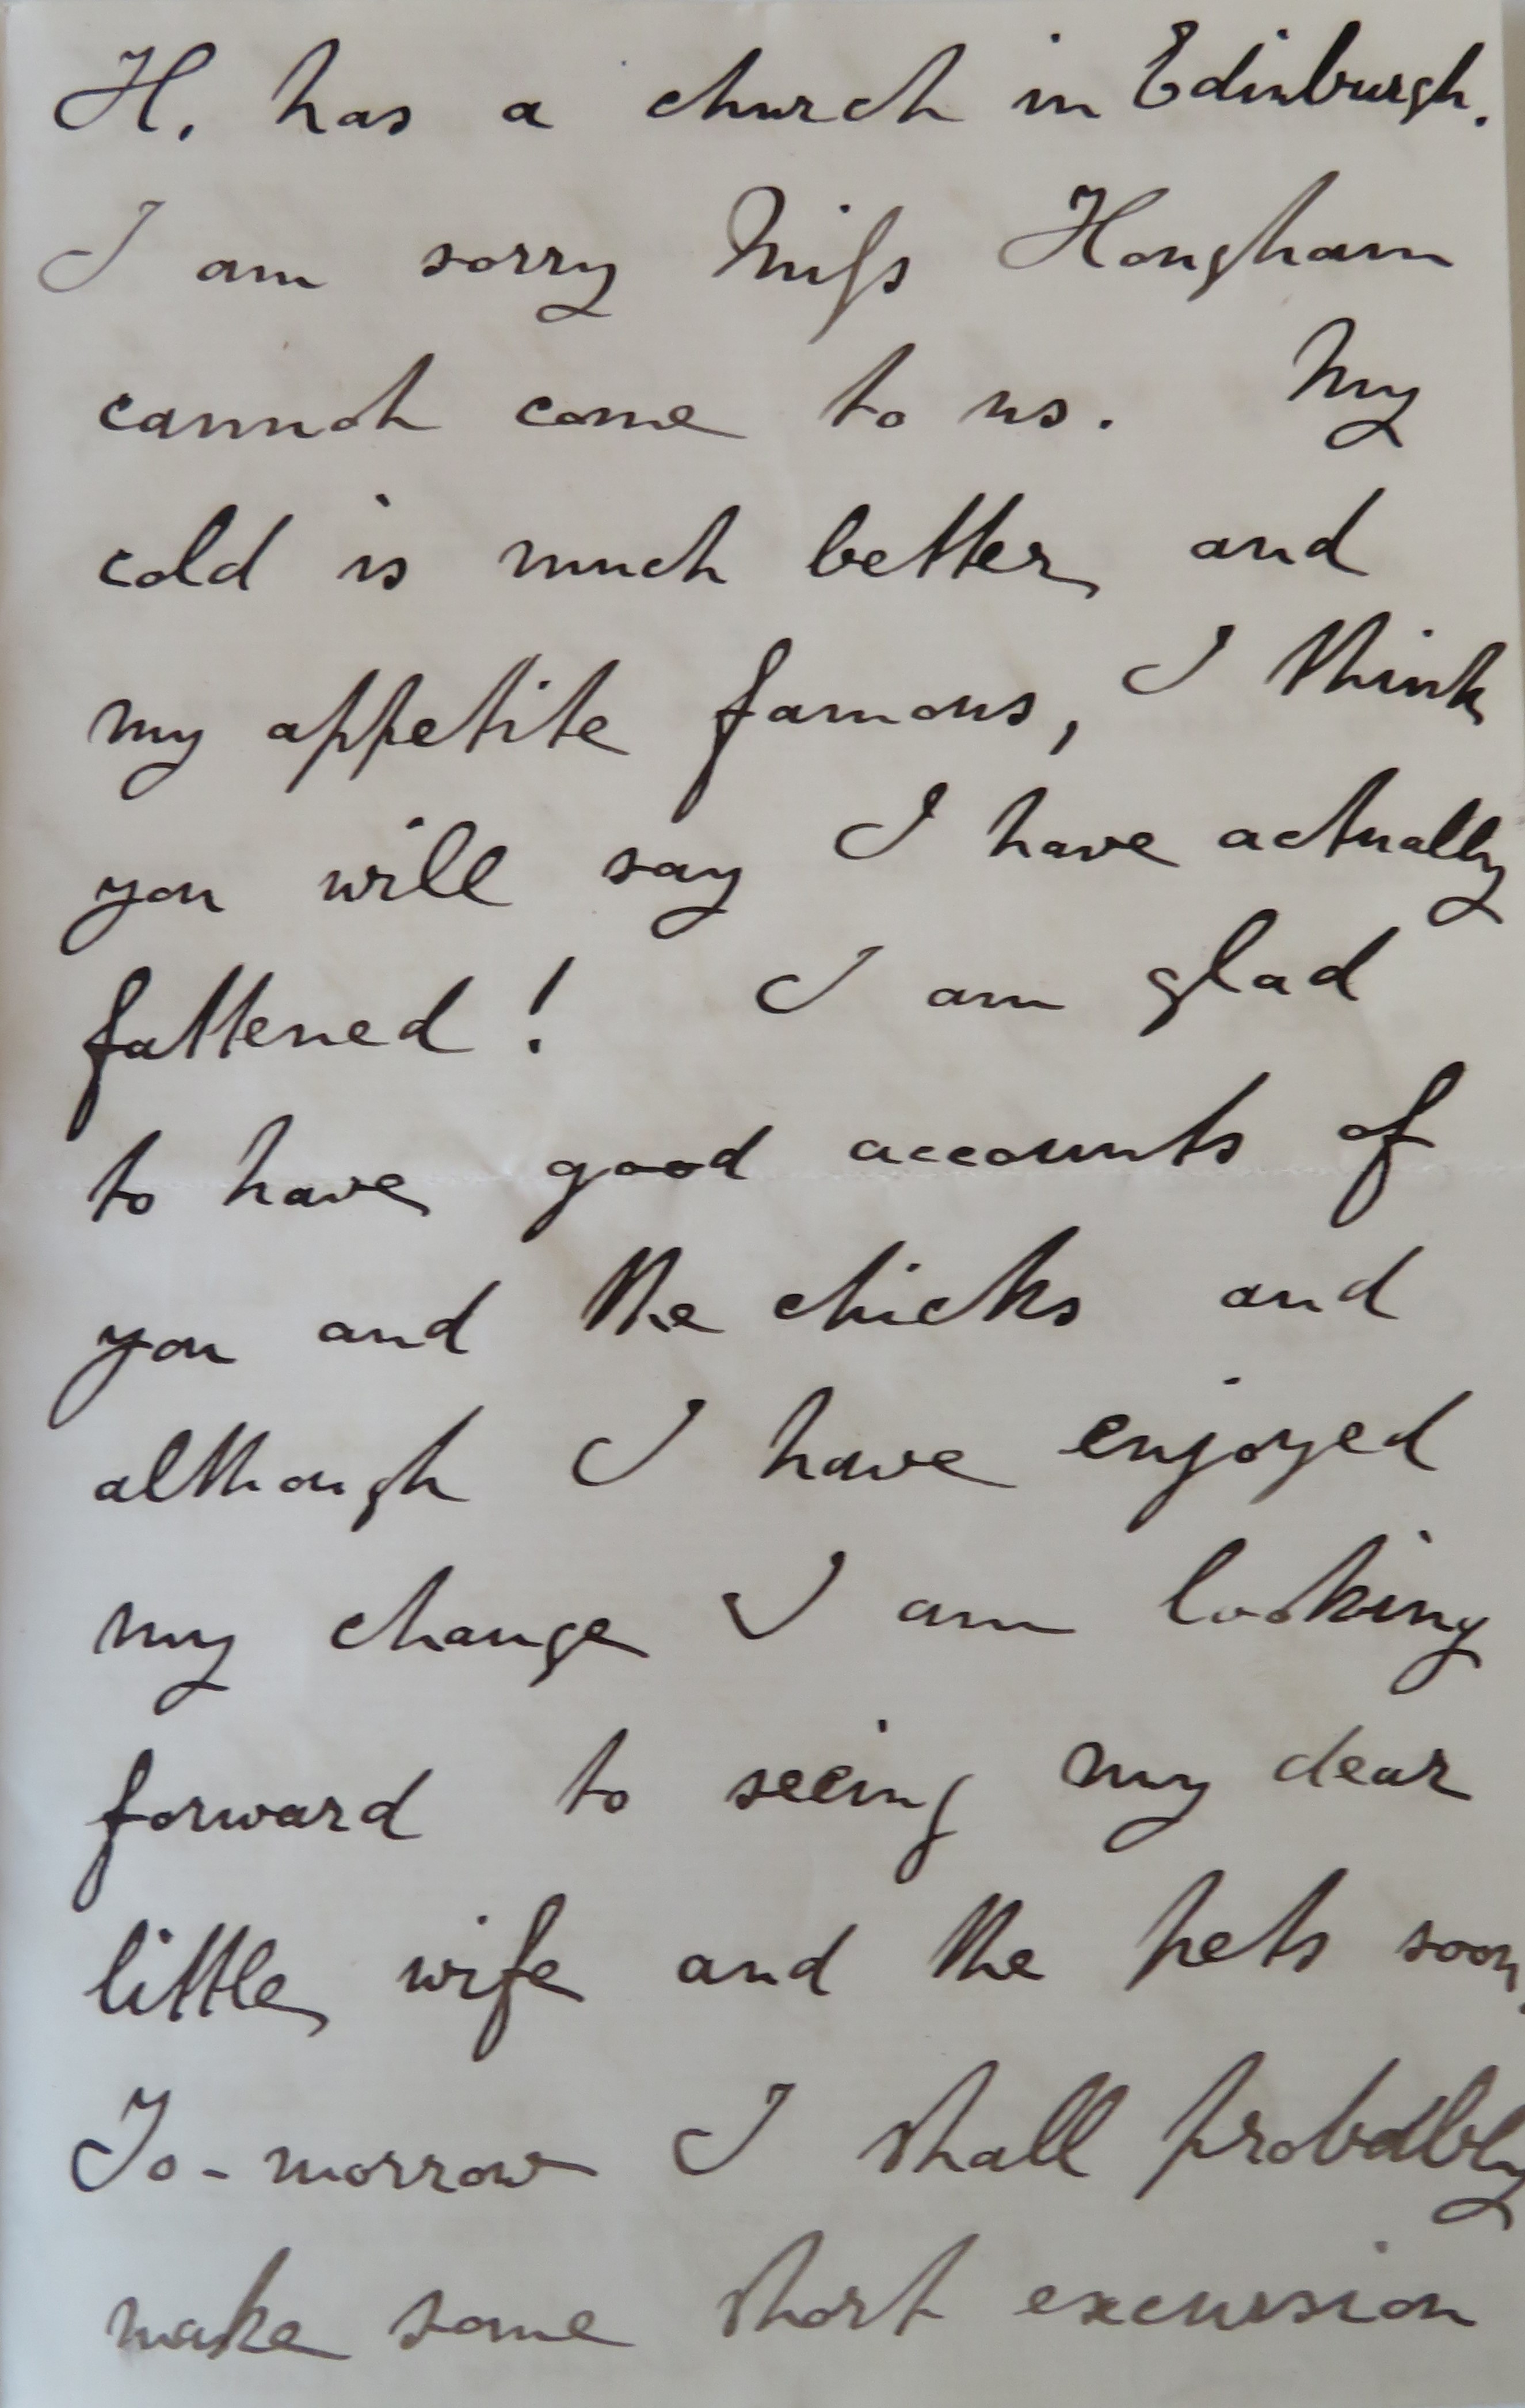 H. has a church in Edinburgh.
I am sorry Miss Hougham
cannot come to us. My
cold is much better and
my appetite famous, I think
you will say I have actually
fattened! I am glad
to have good accounts of
you and the chicks and
although I have enjoyed
my change I am looking
forward to seeing my dear
little wife and the pets soon.
To-morrow I shall probably
make some short excursion